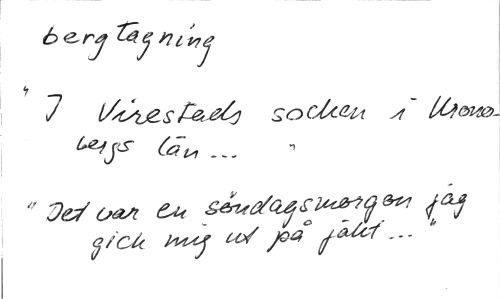 bergtagning
"I Virestads socken i Krono-
bergs län... "
"Det var en söndagsmorgon jag
gick mig ut på jakt..."